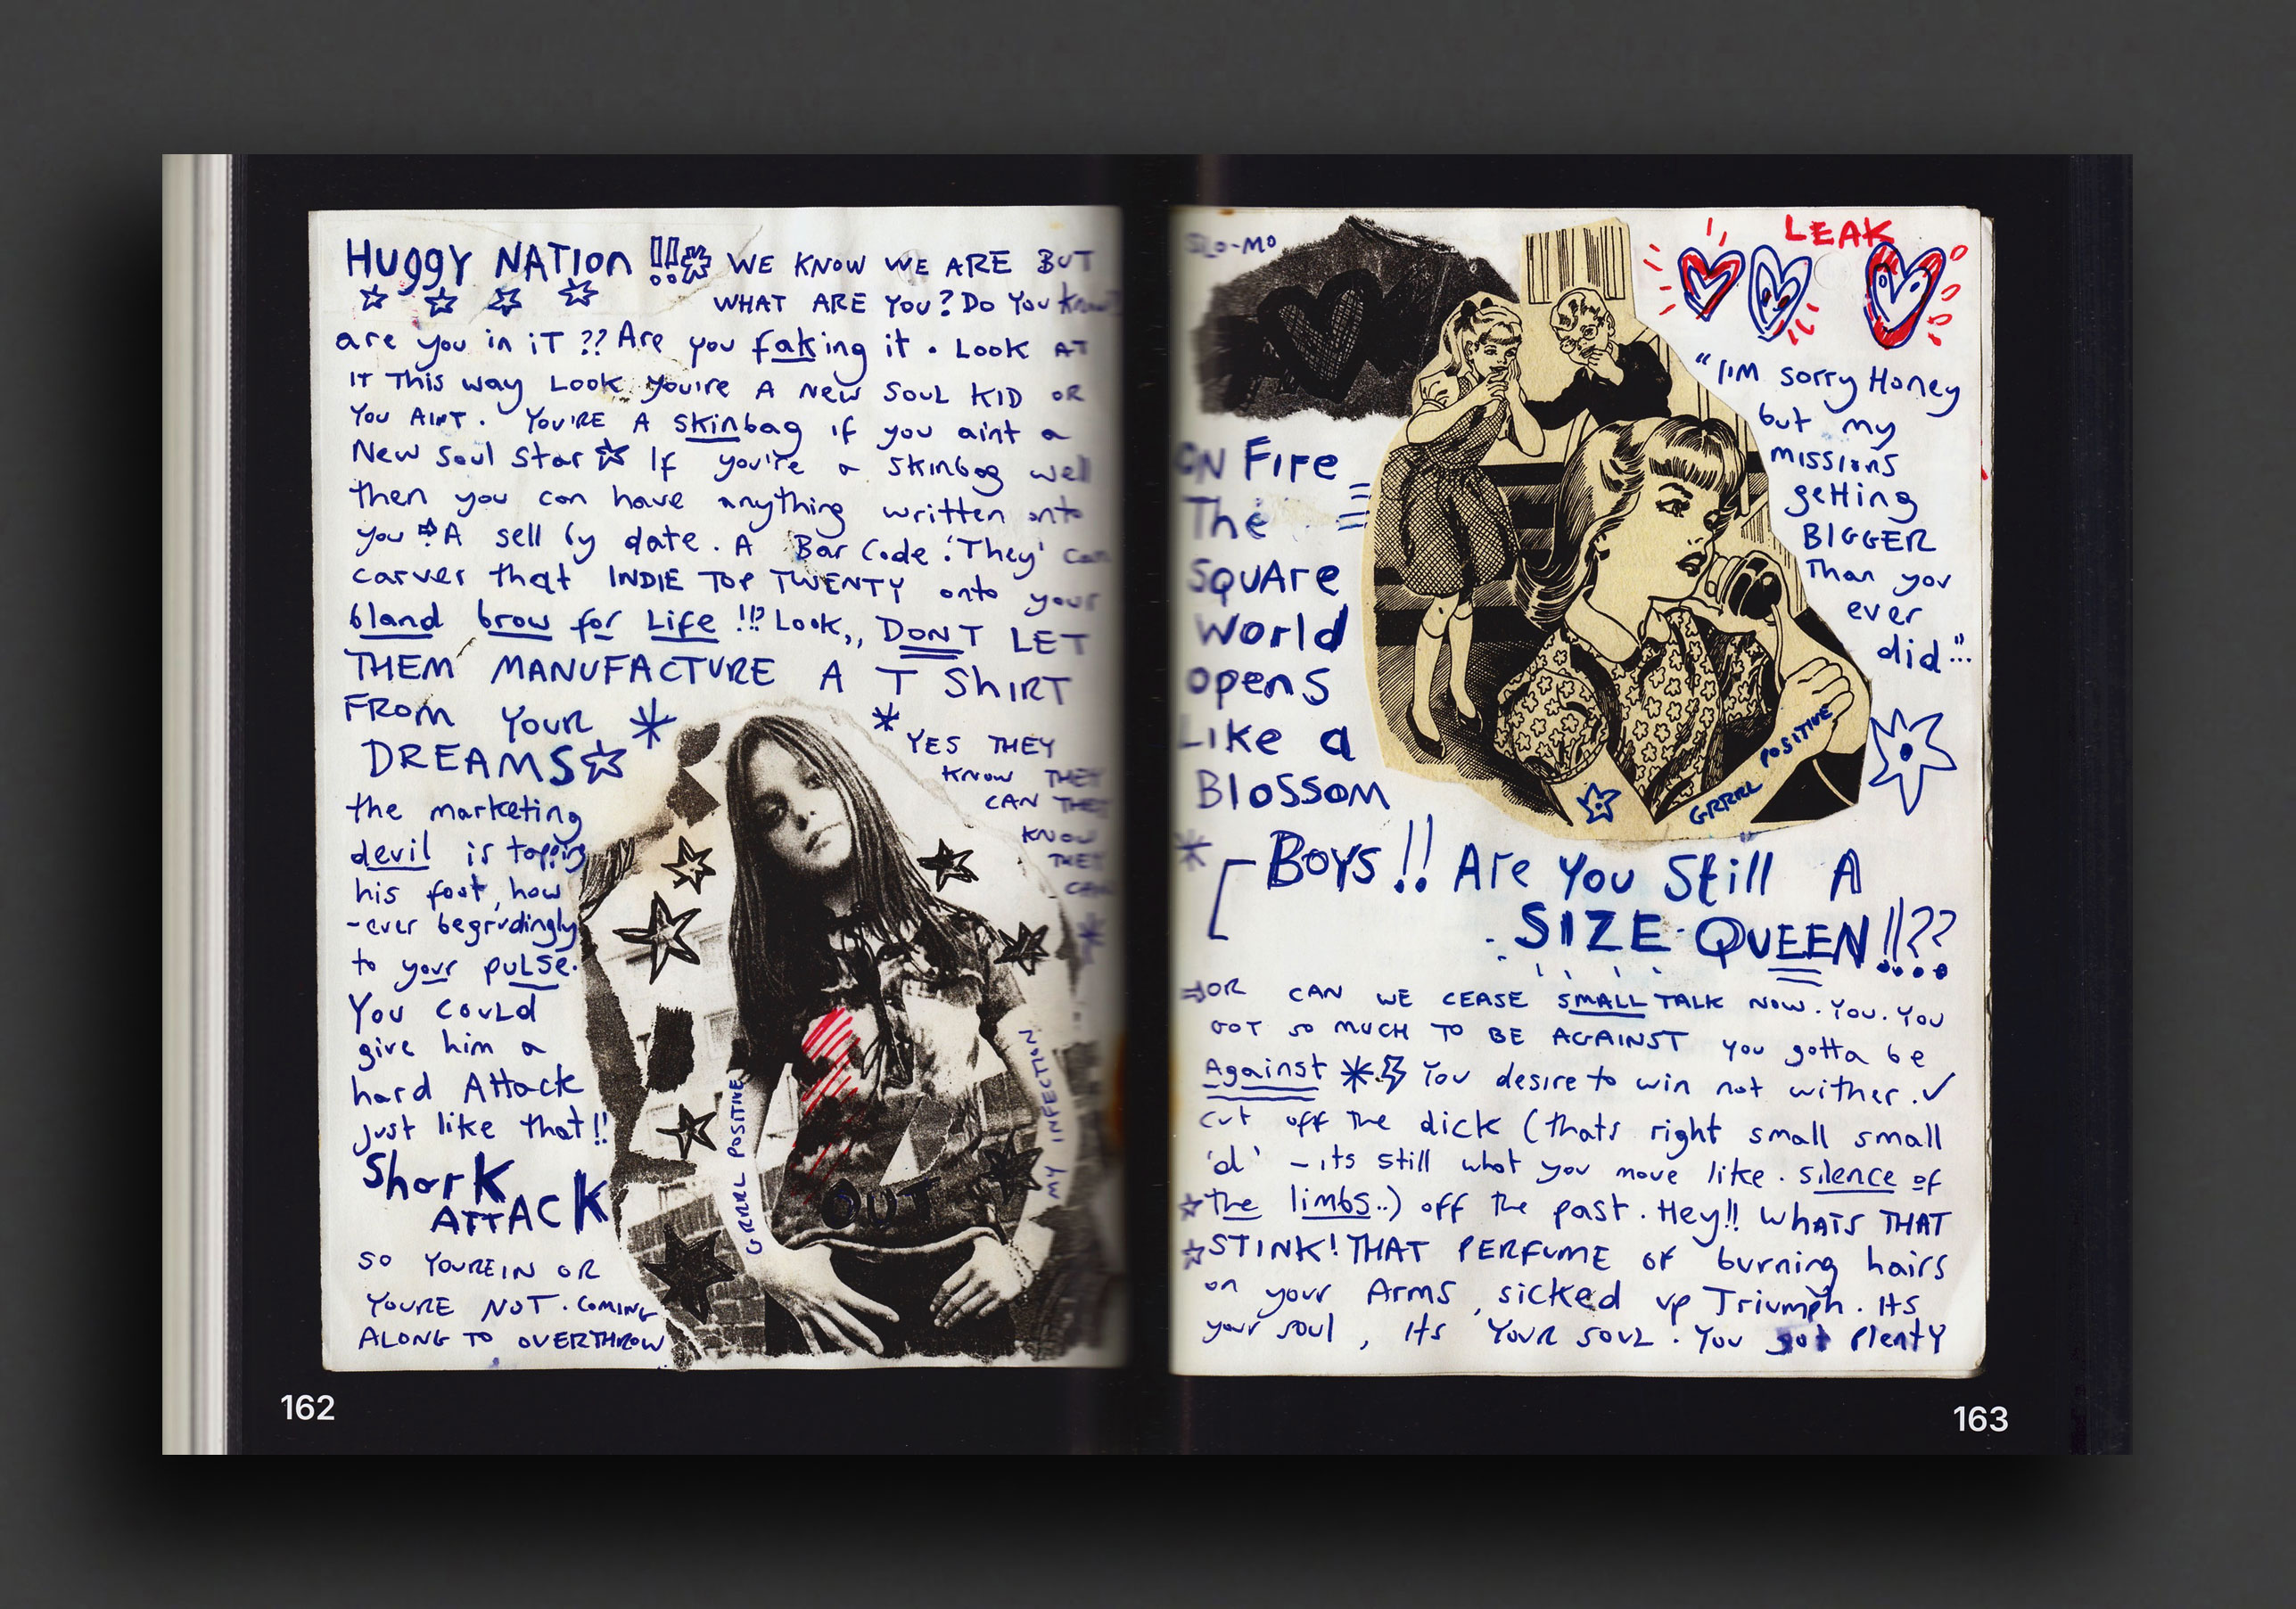 HUGGY NATION !! WE KNOW WE ARE BUT
WHAT ARE YOU? DO YOU know?
are you in iT ?? Are you faking it. Look AT
IT This way Look you're A new SOUL KID OR
YOU AINT. YOU'RE A skinbag if you aint a
New soul star If you're a skinbag well
then you can have anything written onto
you A sell by date. A Bar Code. 'They' can
carver that INDIE TOP TWENTY onto your
bland brow for Life !!? Look,, DONT LET
THEM MANUFACTURE A T ShIRT
FROM YOUR *
DREAMS
* YES THEY
KNOW THEY
CAN THEY
KNOW
THEY
CAN
*
the marketing
devil is tapping
his foot, how
-ever begrudingly
to your pulse.
You could
give him a
hard Attack
just like that!!
Shark
ATTACK
SO YOUREIN OR
YOURE NOT. COMING
ALONG TO OVERTHROW
GRRRL POSITIVE
MY INFECTION
OUT
162
SLO-MO
ON FIre
The
SQUAre
World
opens
Like a
Blossom
LEAK
"I'm sorry Honey
but my
missions
getting
BIGGER
Than you
ever
did"...
GRRRL POSITIVE
* BOYS!! Are You Still A
SIZE QUEEN!!??
OR CAN WE CEASE SMALL TALK NOW. YOU. YOU
GOT SO MUCH TO BE AGAINST you gotta be
Against * You desire to win not wither.
cut off the dick (thats right small small
'd' - its still what you move like. silence of
the limbs..) off the past. Hey!! WHATS THAT
STINK! THAT PERFUME OF burning hairs
on your Arms, sicked up Triumph. Its
your soul, its YOUR SOUL. You got plenty
163